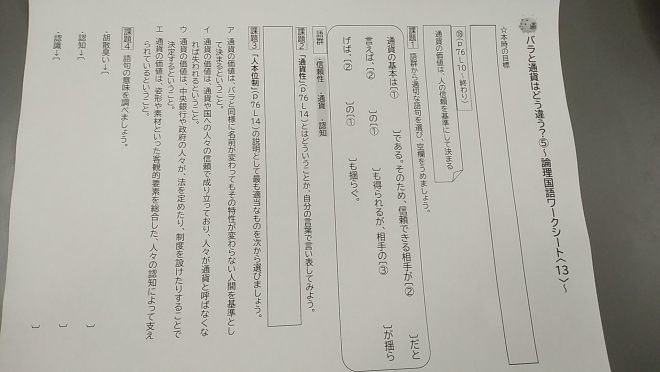 バラと通貨はどう違う?⑤~論理国語ワークシート〈13〉~
☆本時の目標
⑩(p76L10~終わり)
通貨の価値は、人の信頼を基準にして決まる
課題1 語群から適切な語句を選び、空欄をうめましょう。
通貨の基本は〔① 〕である。そのため、信頼できる相手が〔② 〕だと
言えば、〔② 〕の〔① 〕も得られるが、相手の〔③ 〕が揺ら
げば、〔② 〕の〔① 〕も揺らぐ。
語群 ・信頼性 ・通貨 ・認知
課題2 「通貨性」(p76L14)とはどういうことか、自分の言葉で言い表してみよう。
課題3 「人本位制」(p76L14)の説明として最も適当なものを次から選びましょう。
ア 通貨の価値は、バラと同様に名前が変わってもその特性が変わらない人間を基準とし
て決まるということ。
イ 通貨の価値は、通貨や国への人々の信頼で成り立っており、人々が通貨と呼ばなくな
れば失われるということ。
ウ 通貨の価値は、中央銀行や政府の人々が、法を定めたり、制度を設けたりすることで
決定するということ。
エ 通貨の価値は、姿形や素材といった客観的要素を総合した、人々の認知によって支え
られているということ。
課題4 語句の意味を調べましょう。
・胡散臭い→〔 〕
・認知→〔 〕
・認識→〔 〕